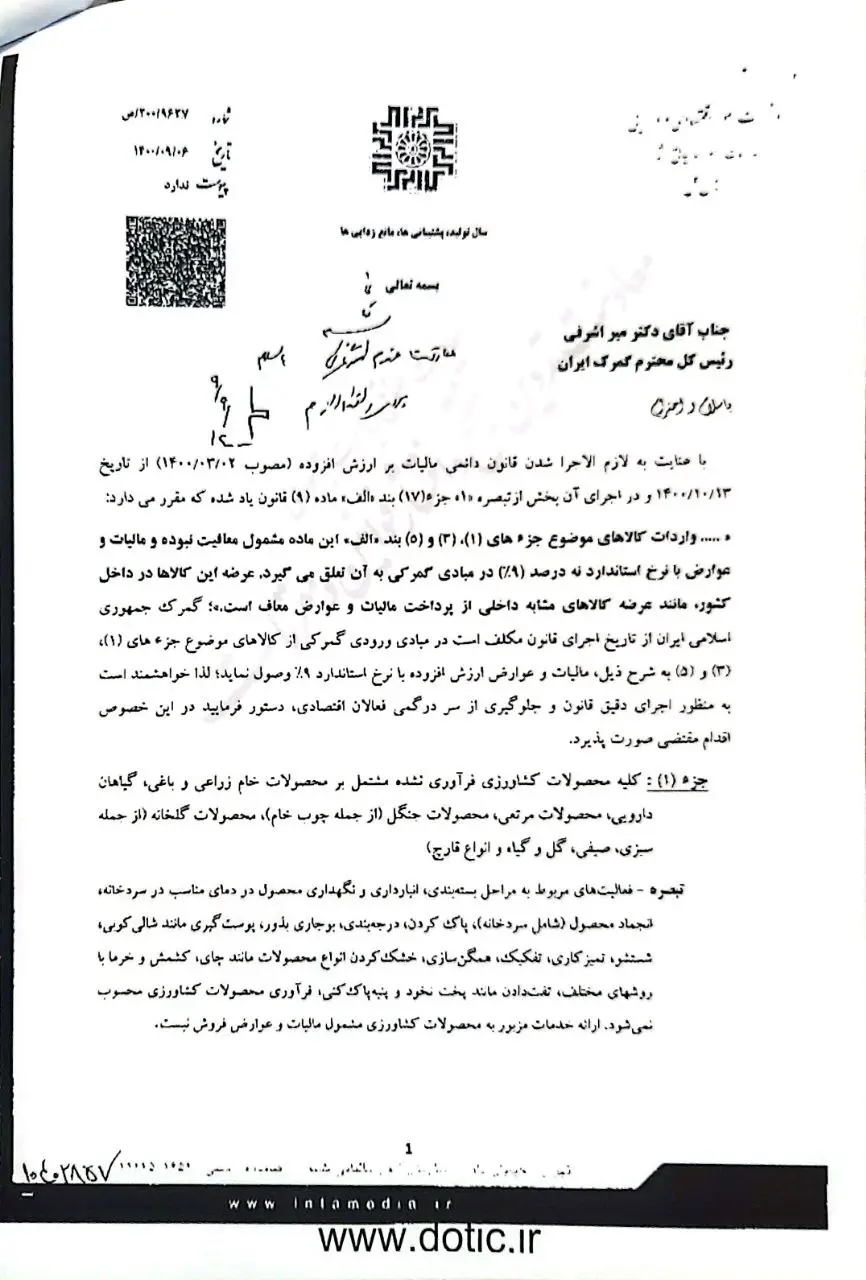 شماره ۲۰۰/۹۶۲۷/ص
تاریخ ۱۴۰۰/۰۹/۰۶
پیوست ندارد
سال تولید، پشتیبانی ها، مانع زدایی ها
بسمه تعالی
جناب آقای دکتر میر اشرفی
رئیس کل محترم گمرک ایران
با سلام و احترام
با عنایت به لازم الاجرا شدن قانون دائمی مالیات بر ارزش افزوده (مصوب ۱۴۰۰/۰۳/۰۲) از تاریخ
۱۴۰۰/۱۰/۱۳ و در اجرای آن بخش از تبصره «۱» جزء (۱۷) بند «الف» ماده (۹) قانون یاد شده که مقرر می دارد:
« ..... واردات کالاهای موضوع جزء های (۱)، (۳) و (۵) بند «الف» این ماده مشمول معافیت نبوده و مالیات و
عوارض با نرخ استاندارد نه درصد (۹%) در مبادی گمرکی به آن تعلق می گیرد. عرضه این کالاها در داخل
کشور، مانند عرضه کالاهای مشابه داخلی از پرداخت مالیات و عوارض معاف است.»؛ گمرک جمهوری
اسلامی ایران از تاریخ اجرای قانون مکلف است در مبادی ورودی گمرکی از کالاهای موضوع جزء های (۱)،
(۳) و (۵) به شرح ذیل، مالیات و عوارض ارزش افزوده با نرخ استاندارد ۹% وصول نماید؛ لذا خواهشمند است
به منظور اجرای دقیق قانون و جلوگیری از سر درگمی فعالان اقتصادی، دستور فرمایید در این خصوص
اقدام مقتضی صورت پذیرد.
جزء (۱) : کلیه محصولات کشاورزی فرآوری نشده مشتمل بر محصولات خام زراعی و باغی، گیاهان
دارویی، محصولات مرتعی، محصولات جنگل (از جمله چوب خام)، محصولات گلخانه (از جمله
سبزی، صیفی، گل و گیاه و انواع قارچ)
تبصره - فعالیت‌های مربوط به مراحل بسته‌بندی، انبارداری و نگهداری محصول در دمای مناسب در سردخانه،
انجماد محصول (شامل سردخانه)، پاک کردن، درجه‌بندی، بوجاری بذور، پوست‌گیری مانند شالی‌کوبی،
شستشو، تمیزکاری، تفکیک، همگن‌سازی، خشک‌کردن انواع محصولات مانند چای، کشمش و خرما با
روشهای مختلف، تفت‌دادن مانند پخت نخود و پنبه‌پاک‌کنی، فرآوری محصولات کشاورزی محسوب
نمی‌شود. ارائه خدمات مزبور به محصولات کشاورزی مشمول مالیات و عوارض فروش نیست.
1
www intamedia ir
www.dotic.ir